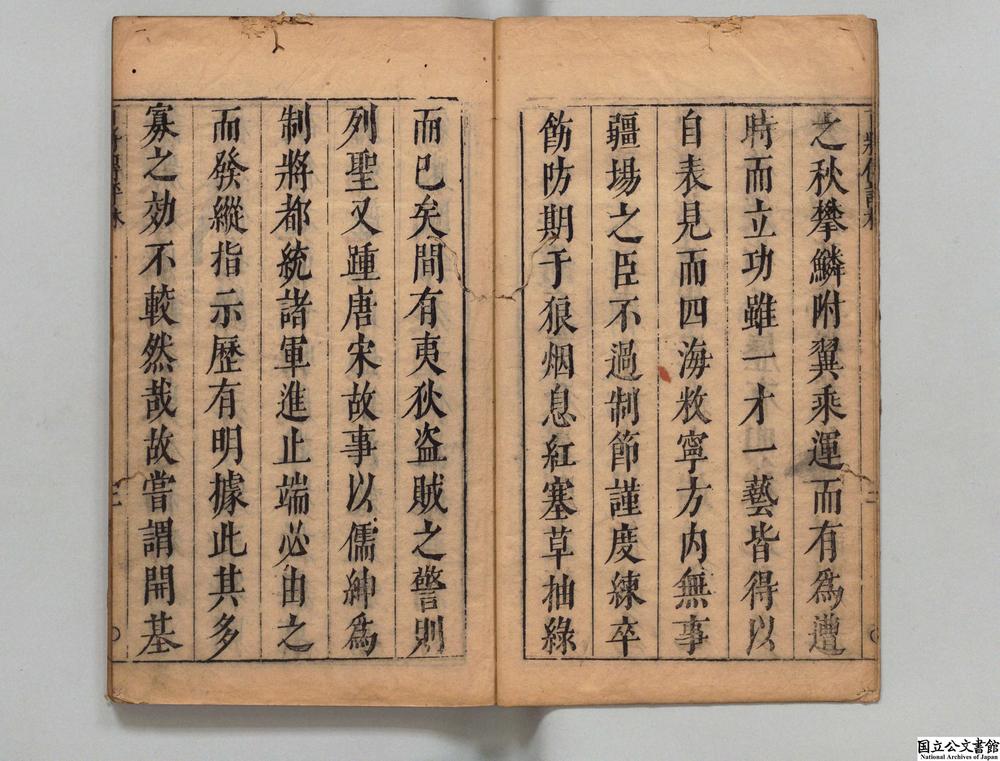 之秋攀鱗附翼乘運而有爲遭
時而立功雖一才一藝皆得以
自表見而四海敉寧方内無事
疆場之臣不過制節謹度練卒
飭防期于狼烟息紅塞草抽綠
而巳矣間有夷狄盗賊之警則
列聖又踵唐宋故事以儒紳爲
制將都統諸軍進止端必由之
而發縱指示歷有明據此其多
寡之効不較然哉故嘗謂開基
二
二
国立公文書館
National Archives of Japan